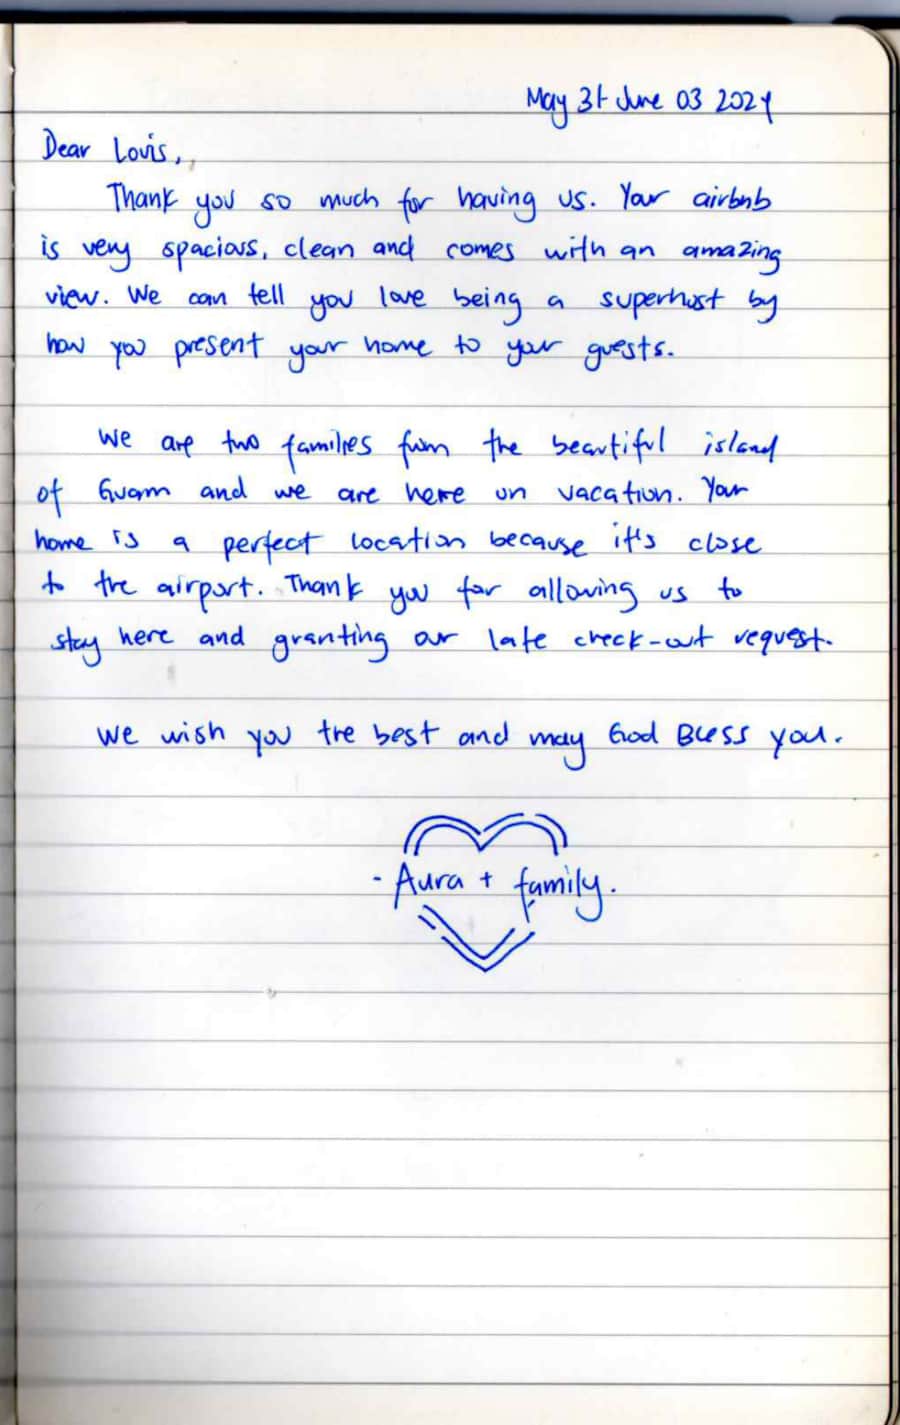 May 31-June 03 2024
Dear Louis,
Thank you so much for having us. Your airbnb
is very spacious, clean and comes with an amazing
view. We can tell you love being a superhost by
how you present your home to your guests.
We are two families from the beautiful island
of Guam and we are here on vacation. Your
home is a perfect location because it's close
to the airport. Thank you for allowing us to
stay here and granting our late check-out request.
We wish you the best and may God Bless you.
- Aura + family.